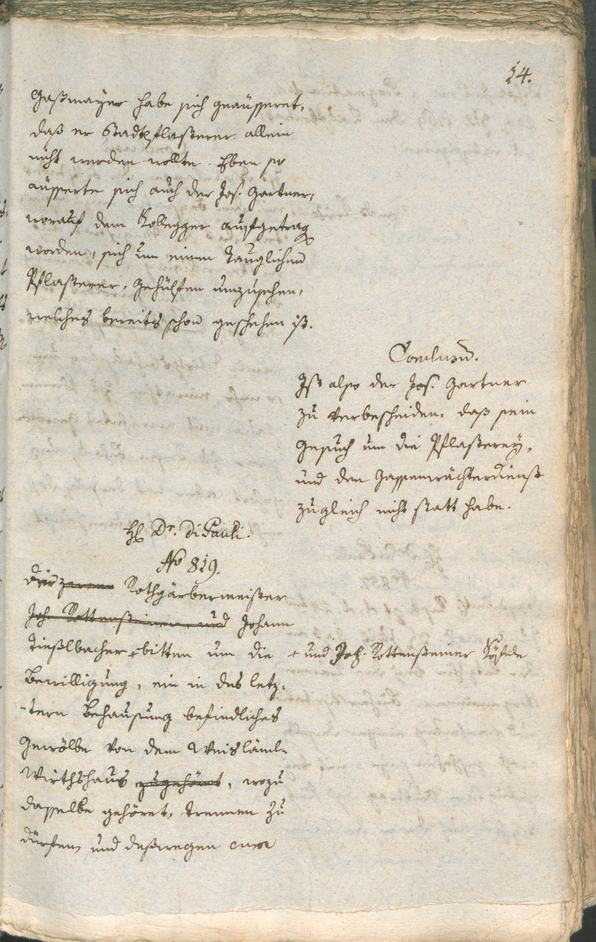 14.
Gaßmayer habe sich geäusseret,
daß er Stadtpflasterer allein
nicht werden wollte. Eben so
äusserte sich auch der Jos. Gartner,
worauf dem Kollegger aufgetrag
worden, sich um einen tauglichen
Pflasterer-Gehülfen umzusehen,
welches bereits schon geschehen ist.
Conclusum.
Ist also der Jos. Gartner
zu verbescheiden, daß sein
Gesuch um die Pflasterey,
und den Gassenwächterdienst
zugleich nicht statt habe.
H Dr. Di Pauli.
No 819.
Die Rothgärbermeister
Joh Rottensteiner und Johann
Dießlbacher + bitten um die + und Joh. Rottensteiner
Bewilligung, ein in des letz-
tern Behausung befindliches
Gewölbe von dem Weislämbl-
Wirthshaus zugehöret, wozu
dasselbe gehöret, trennen zu
dürfen, und deßwegen eine